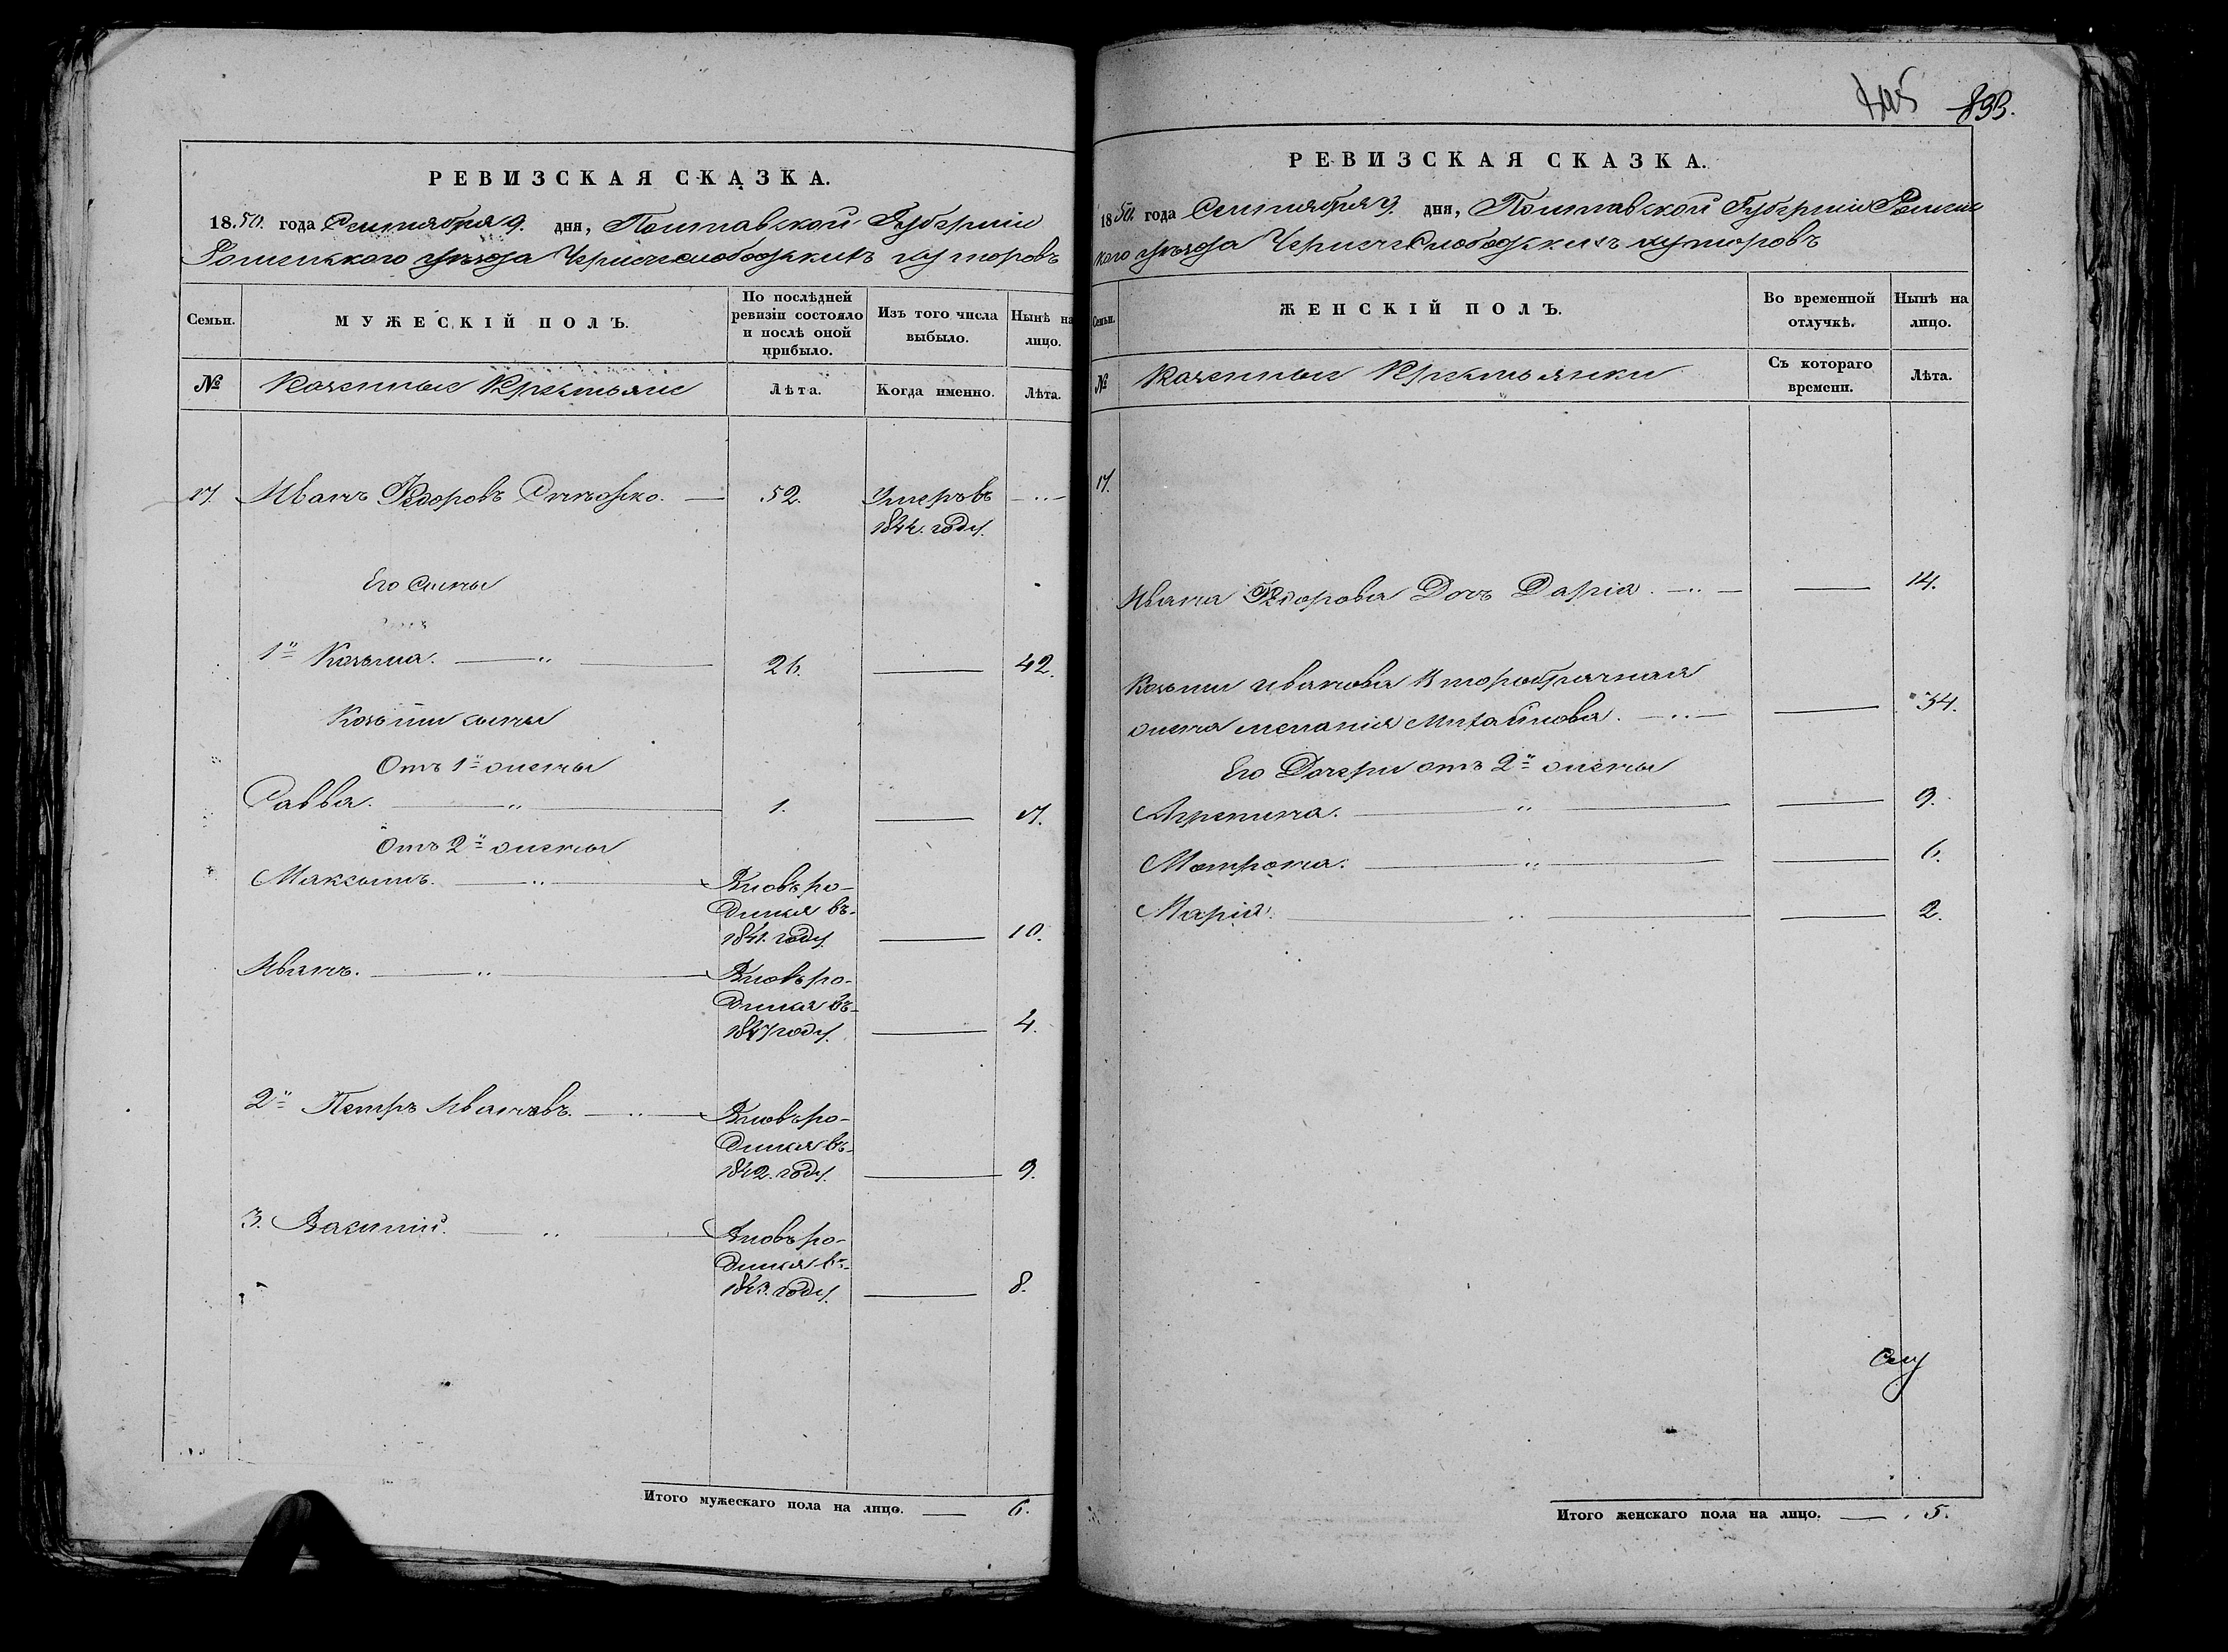 РЕВИЗСКАЯ СКАЗКА.
1850. года Сентября 9. дня, Полтавской Губерніи
Роменского уѣзда Чернечеслободскихъ хуторовъ
Семьи.
МУЖЕСКІЙ ПОЛЪ.
По послѣдней
ревизіи состояло
и послѣ оной
прибыло.
Изъ того числа
выбыло.
Нынѣ на
лицо.
№
Казенные Крестьяне
Лѣта.
Когда именно.
Лѣта.
17. Иванъ Федоровъ 52. Умеръ въ
1844. году.
Его сыны
1й Козьма. 26. 42.
Козьмы сыны
Отъ 1й жены
Савва. 1. 17.
Отъ 2й жены
Максымъ. Вновь ро-
дился въ
1841. году. 10.
Иванъ. Вновь ро-
дился въ
1847 году. 4.
2й Петръ Ивановъ. Вновь ро-
дился въ
1842. году. 9.
3. Василий. Вновь ро-
дился въ
1843. году. 8.
Итого мужескаго пола на лицо. 6.
893.
РЕВИЗСКАЯ СКАЗКА.
1850. года Сентября 9. дня, Полтавской Губерніи Роменс
кого уѣзда Чернечеслободскихъ хуторовъ
Семьи.
ЖЕНСКІЙ ПОЛЪ.
Во временной
отлучкѣ.
Нынѣ на
лицо.
№
Казенные Крестьянки
Съ котораго
времени.
Лѣта.
17.
Ивана Федорова Дочь Дарія. 14.
Козьмы Иванова Второбрачная
жена Меланія Михайлова. 34.
Его Дочери отъ 2й жены
Агрепина. 9.
Мотрона. 6.
Марія. 2.
Итого женскаго пола на лицо. 5.